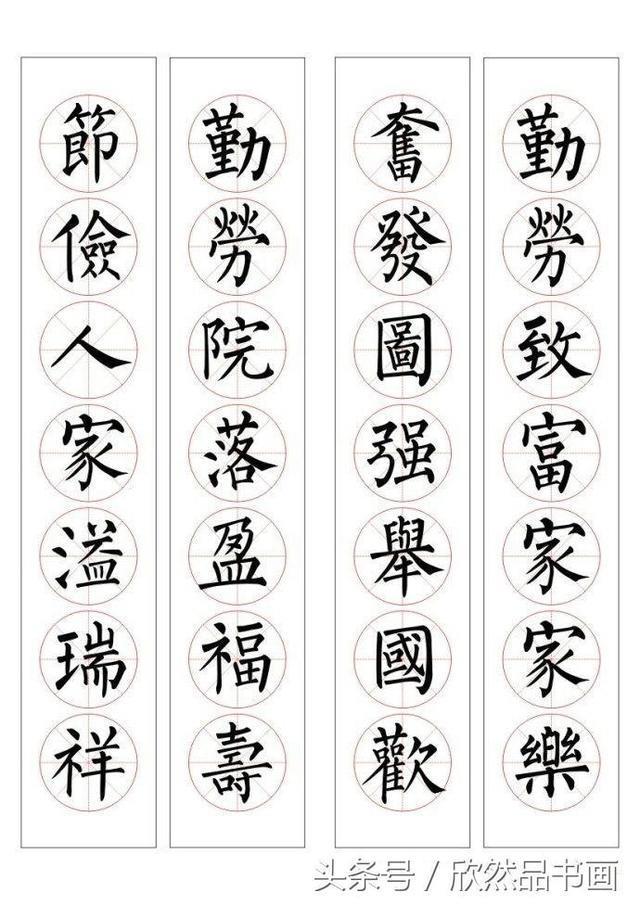 勤勞致富家家樂
奮發圖强舉國歡
勤勞院落盈福壽
節儉人家溢瑞祥
头条号 / 欣然品书画